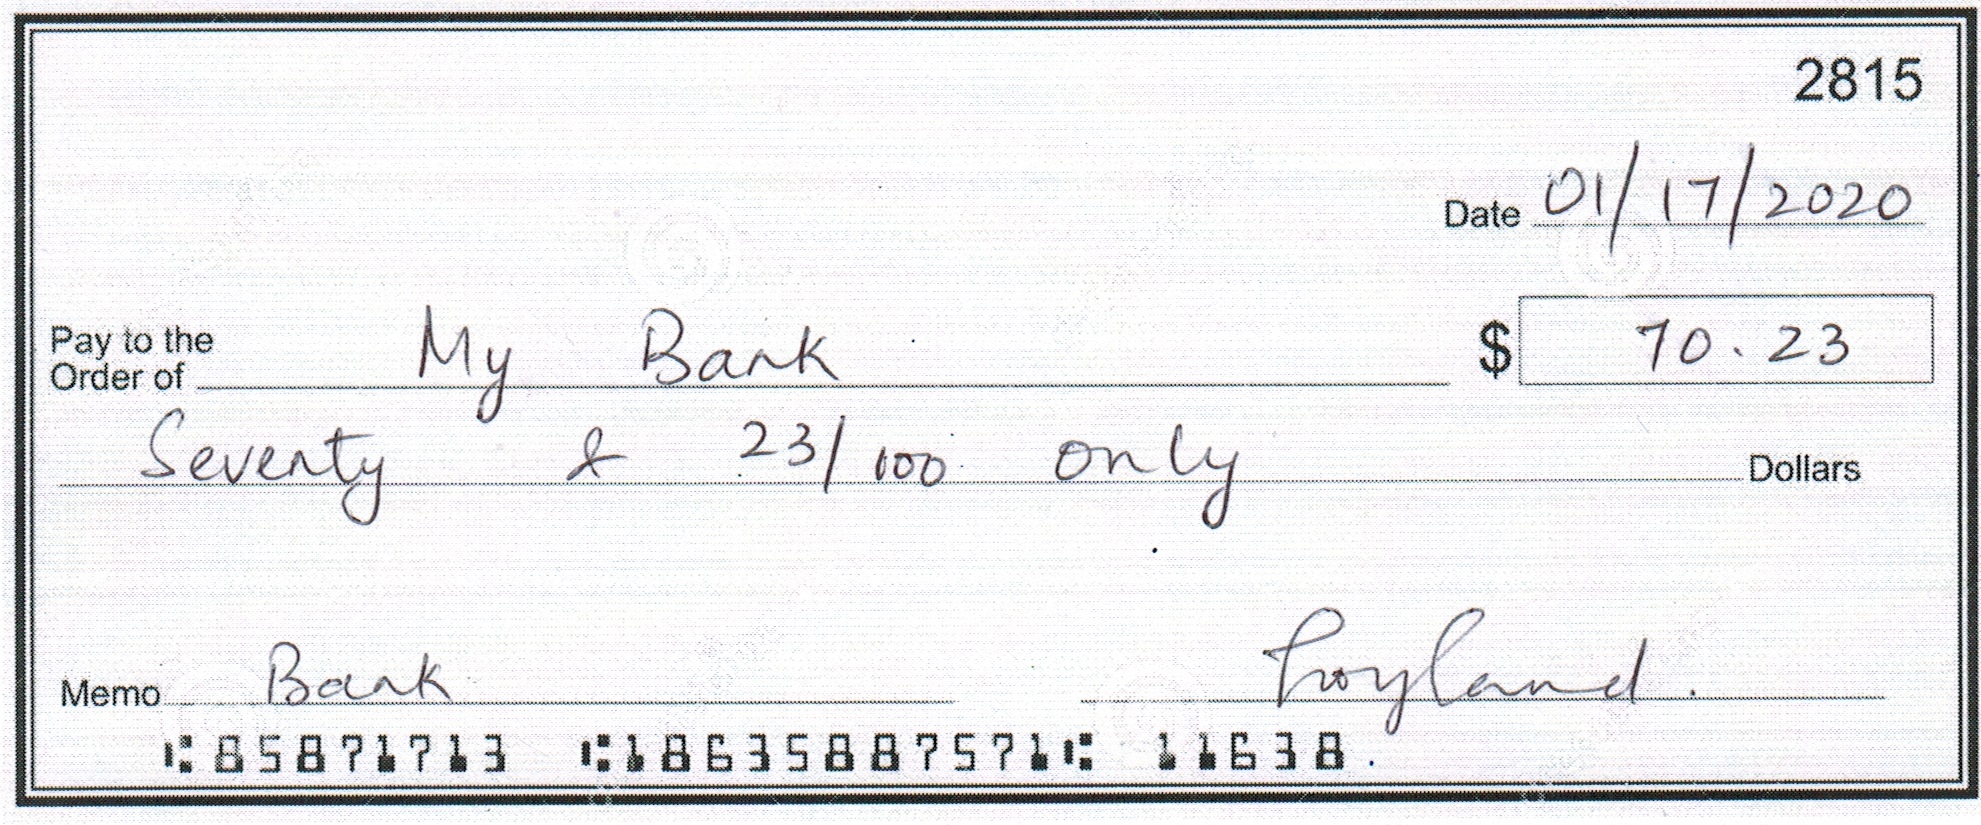 2815
Date 01/17/2020
Pay to the
Order of My Bank $ 70.23
Seventy & 23/100 only Dollars
Memo Bank
⑆85871713 ⑆18635887571⑆ 11638